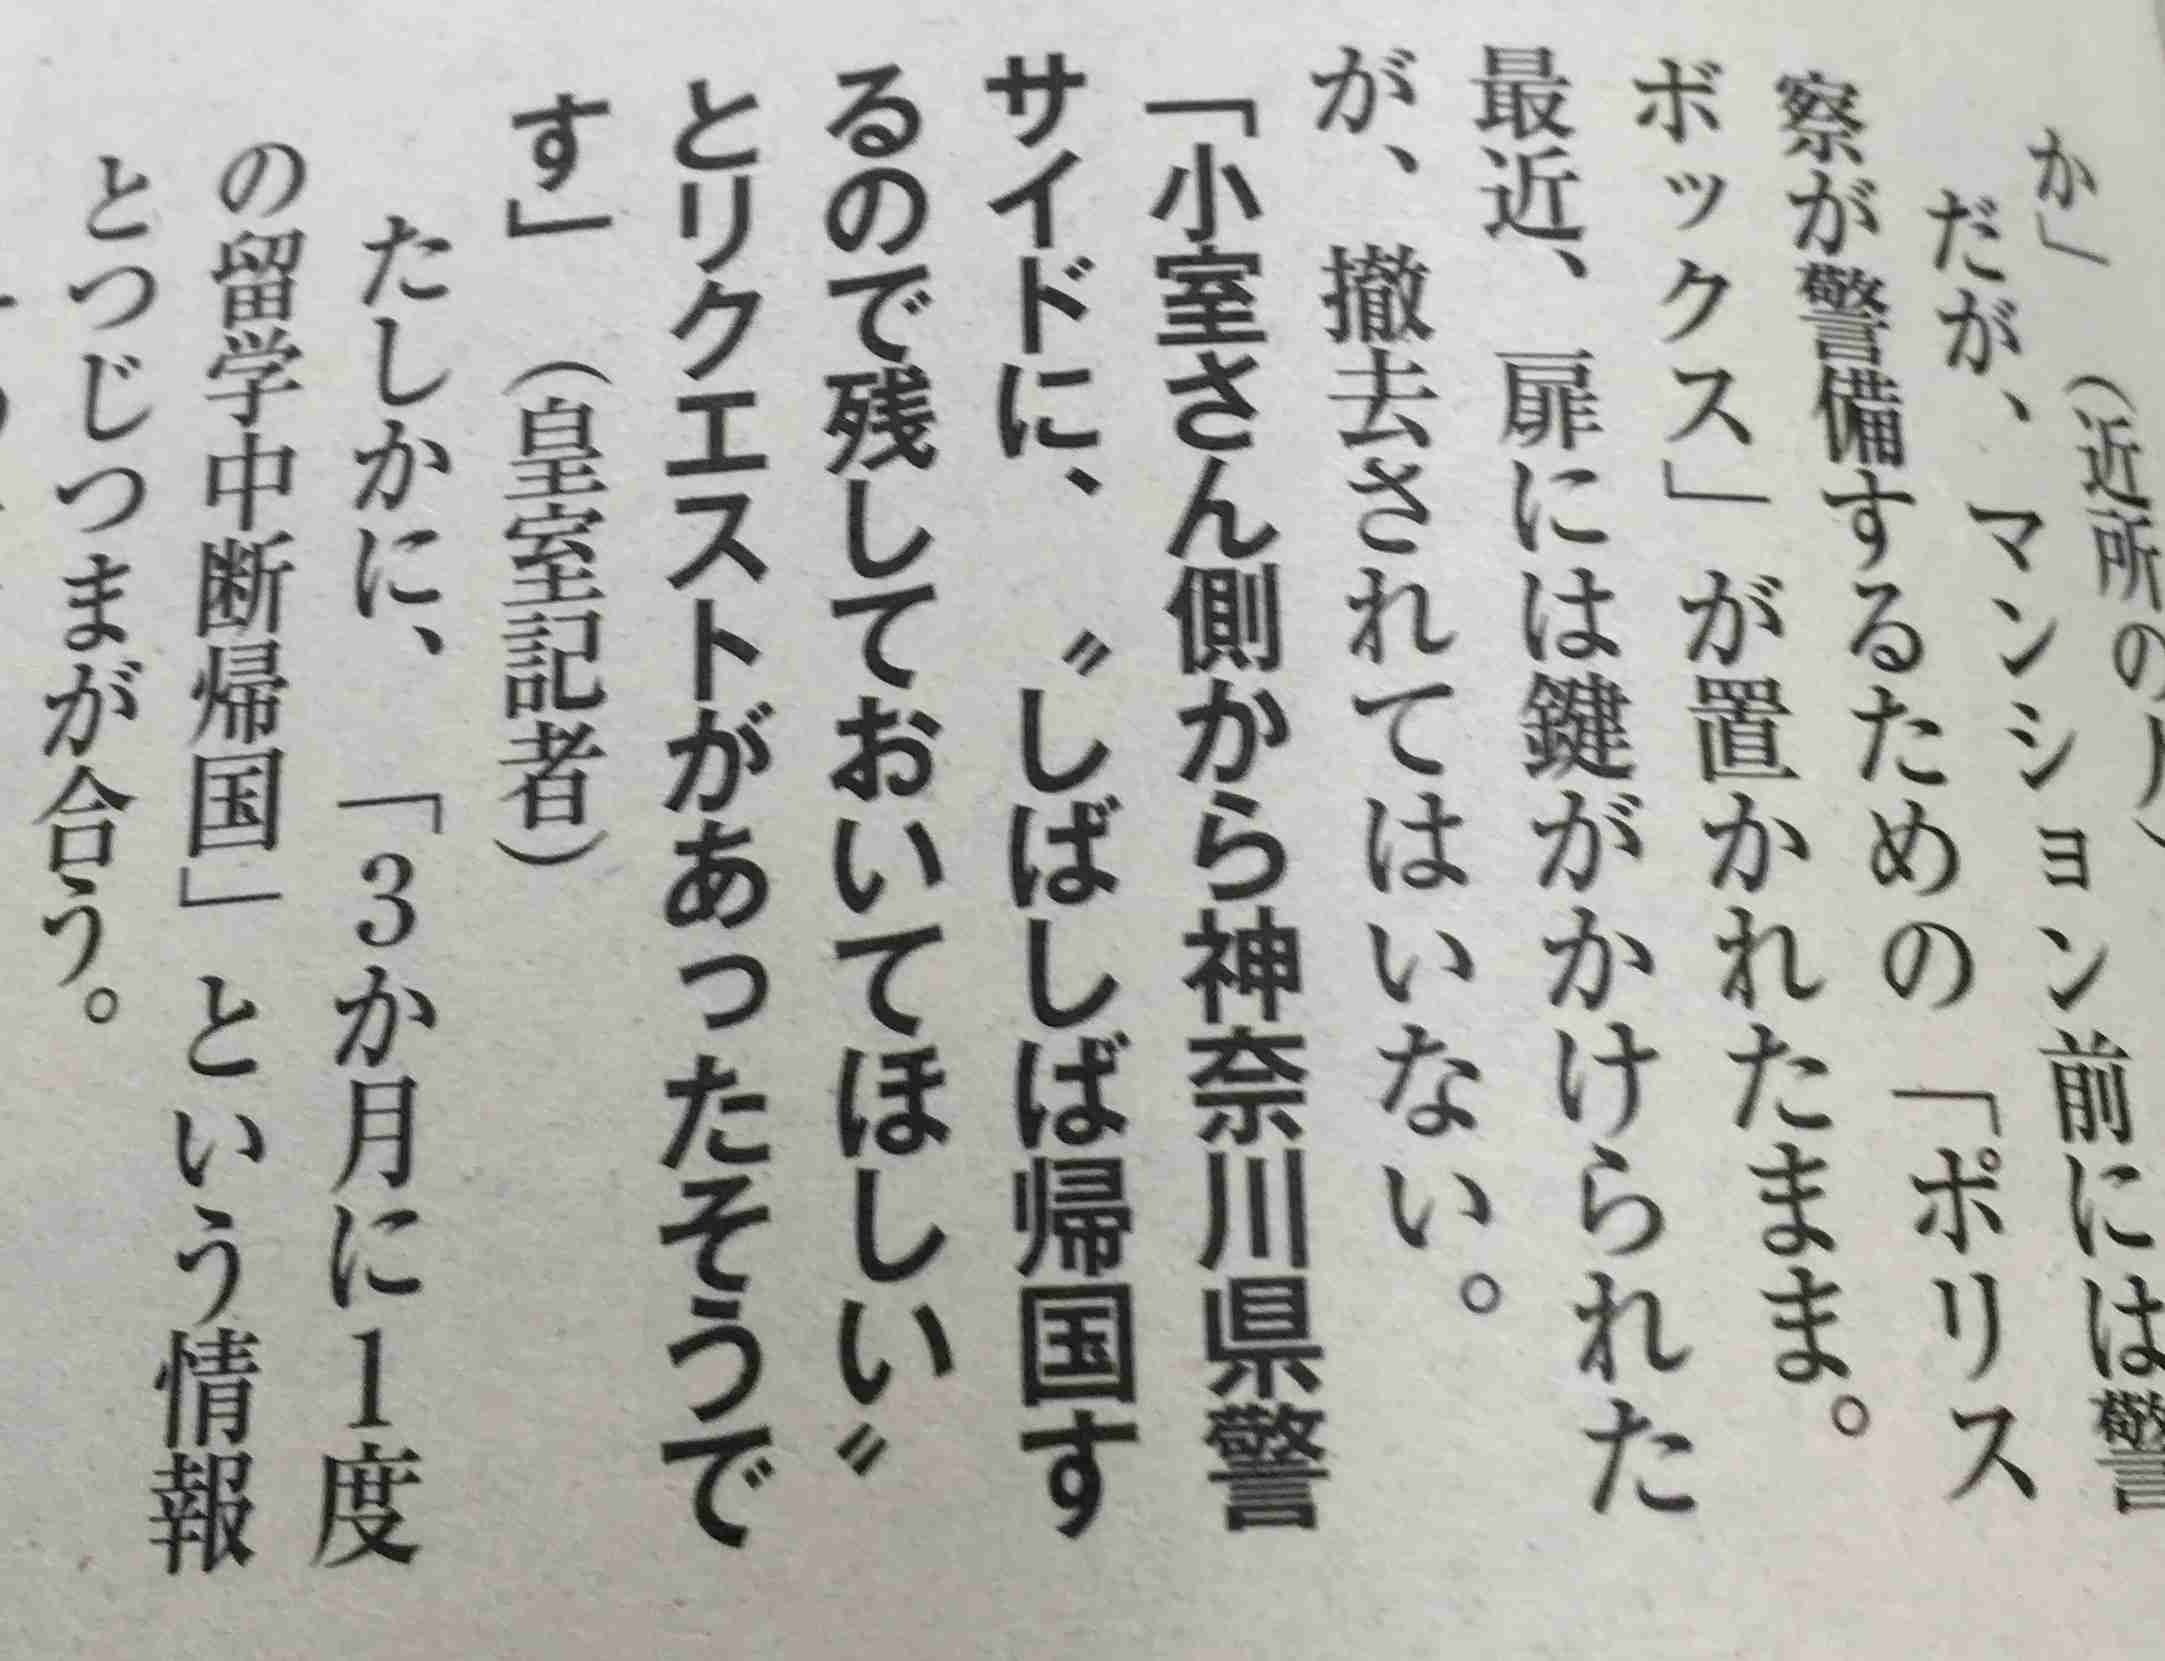 か」（近所の人）
だが、マンション前には警
察が警備するための「ポリス
ボックス」が置かれたまま。
最近、扉には鍵がかけられた
が、撤去されてはいない。
「小室さん側から神奈川県警
サイドに、〝しばしば帰国す
るので残しておいてほしい〟
とリクエストがあったそうで
す」（皇室記者）
たしかに、「3か月に1度
の留学中断帰国」という情報
とつじつまが合う。